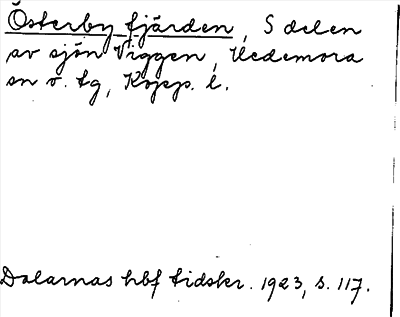 Österby fjärden, S delen
av sjön Viggen, Hedemora
sn o. tg, Kopp. l.
Dalarnas hbf tidskr. 1923, s. 117.